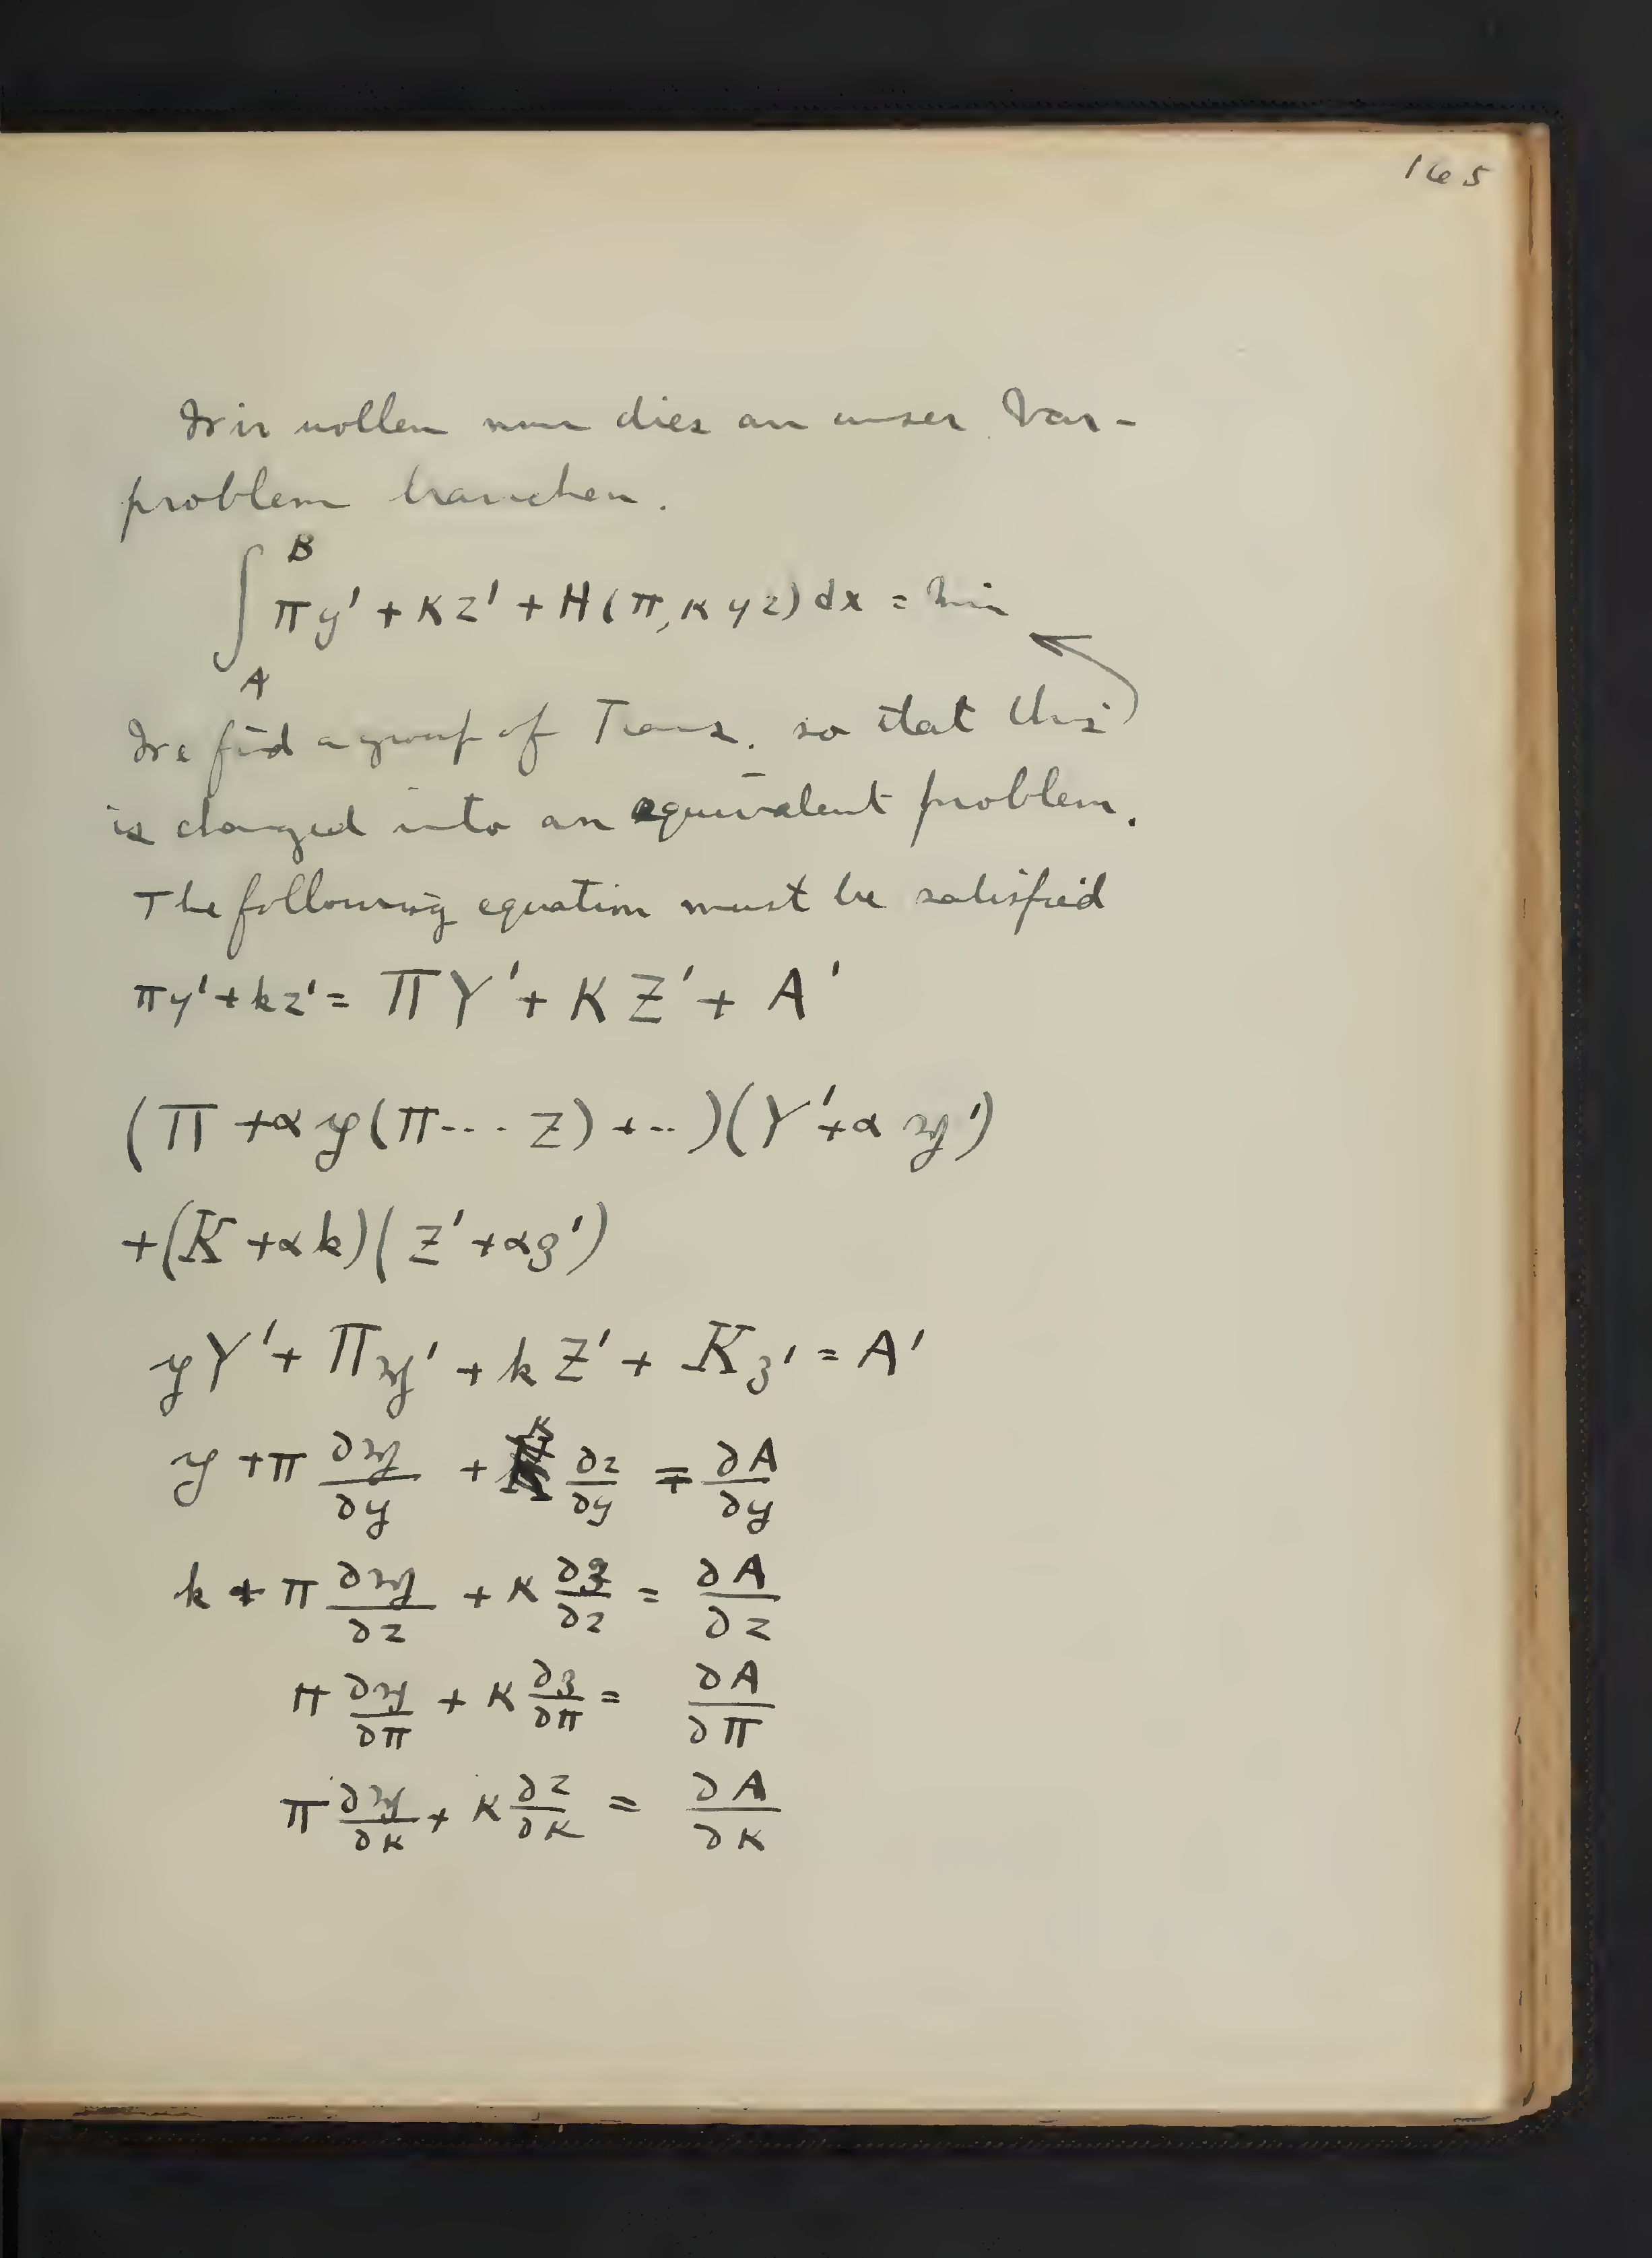 165
Wir wollen nun dies an unser Var-
problem brauchen.
∫_A^B πy' + κz' + H(π, κ y z) dx = Min
We find a group of Trans. so that this
is changed into an equivalent problem.
The following equation must be satisfied
πy' + kz' = ΠY' + KZ' + A'
(Π + α y(π --- z) + -- )(Y' + α 𝔶')
+ (K + αk)(Z' + α𝔷')
yY' + Π𝔶' + kZ' + K𝔷' = A'
y + π ∂𝔶/∂y + κ ∂z/∂y = ∂A/∂y
k + π ∂𝔶/∂z + κ ∂𝔷/∂z = ∂A/∂z
π ∂𝔶/∂π + κ ∂𝔷/∂π = ∂A/∂π
π ∂𝔶/∂κ + κ ∂z/∂κ = ∂A/∂κ